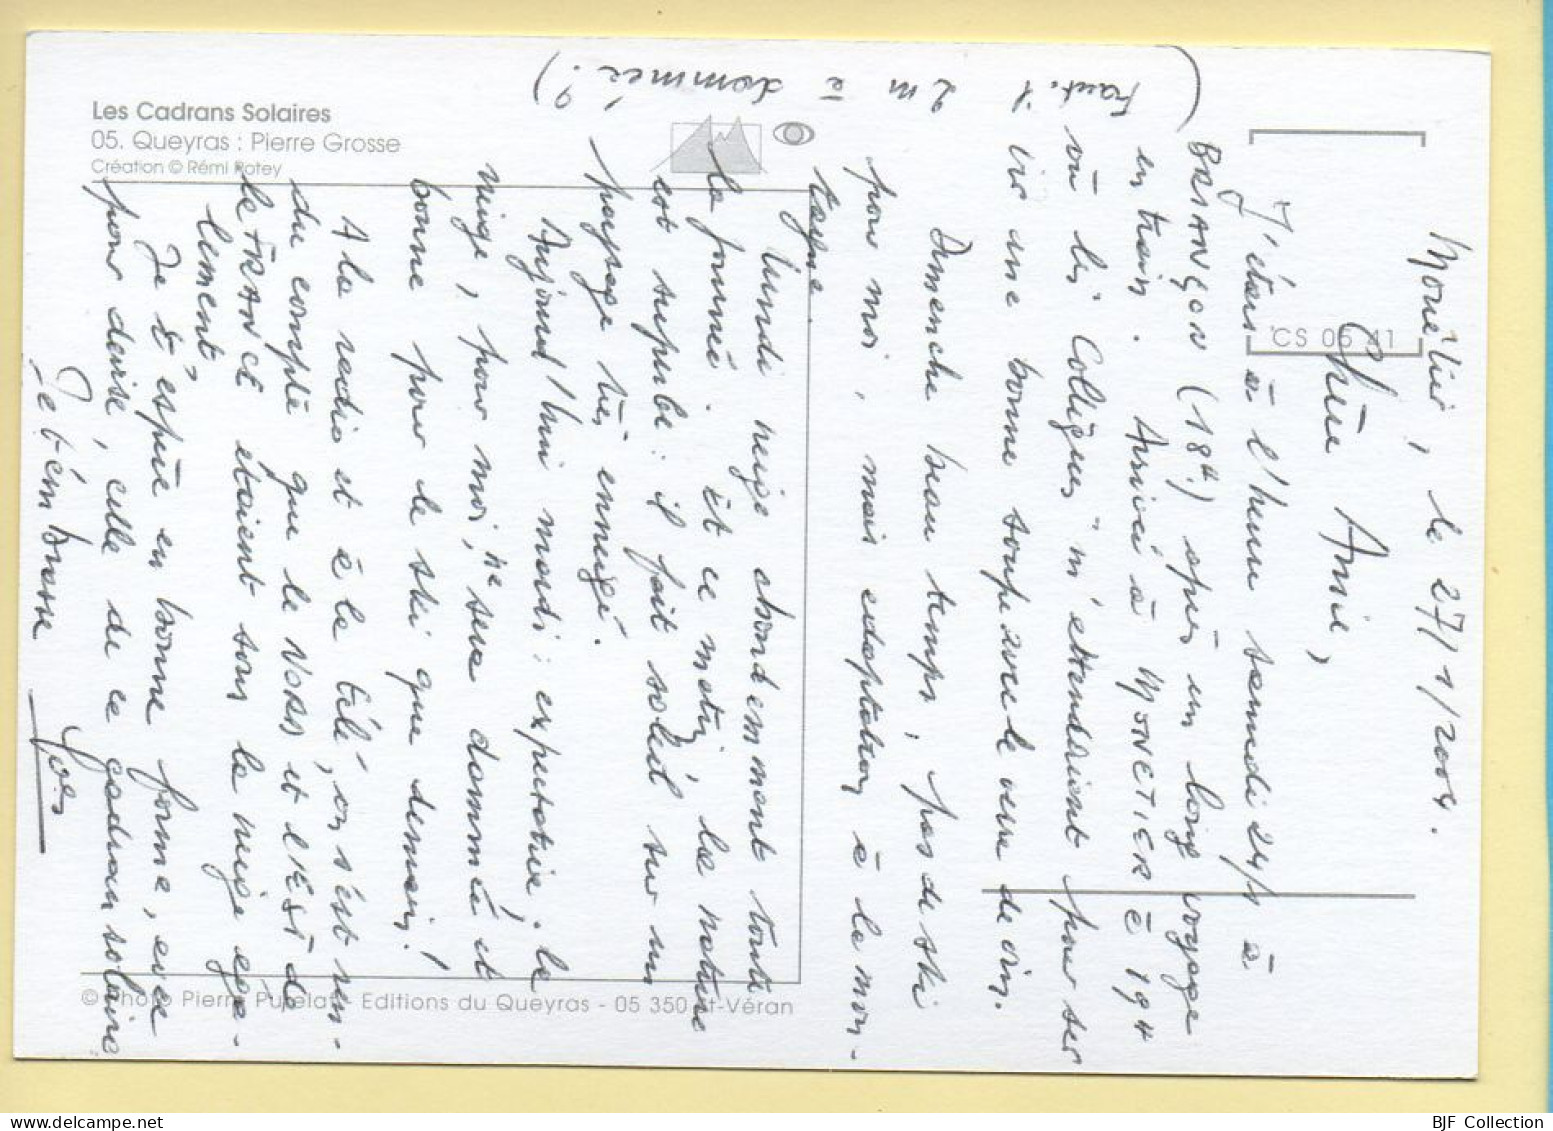 Les Cadrans Solaires
05. Queyras : Pierre Grosse
Création © Rémi Potey
CS 05 11
© Photo Pierre Putelat - Editions du Queyras - 05 350 St-Véran
le 27/1/2004.
Chère Anie,
J'étais à l'heure samedi 24/1 à
BRIANÇON (18H) après un long voyage
en train. Arrivé à MONETIER à 19H
où les Collègues m'attendaient pour ser
vir une bonne soupe avec le verre de vin.
Dimanche beau temps, pas de ski
pour moi, mais adaptation à la mon-
tagne.
Lundi neige abondamment toute
la journée. Et ce matin, la nature
est superbe : il fait soleil sur un
paysage très enneigé.
Aujourd'hui mardi : expectative. la
neige, pour moi, ne sera damnée et
bonne pour le ski que demain !
A la radio et à la télé, on s'est ren-
du compte que le NORD et l'EST de
la FRANCE étaient sous la neige éga-
lement.
Je t'espère en bonne forme, avec
pour devise, celle de ce cadran solaire
Je t'embrasse
Yves
(Faut-il
2m à
sommée ?)
BJF Collection